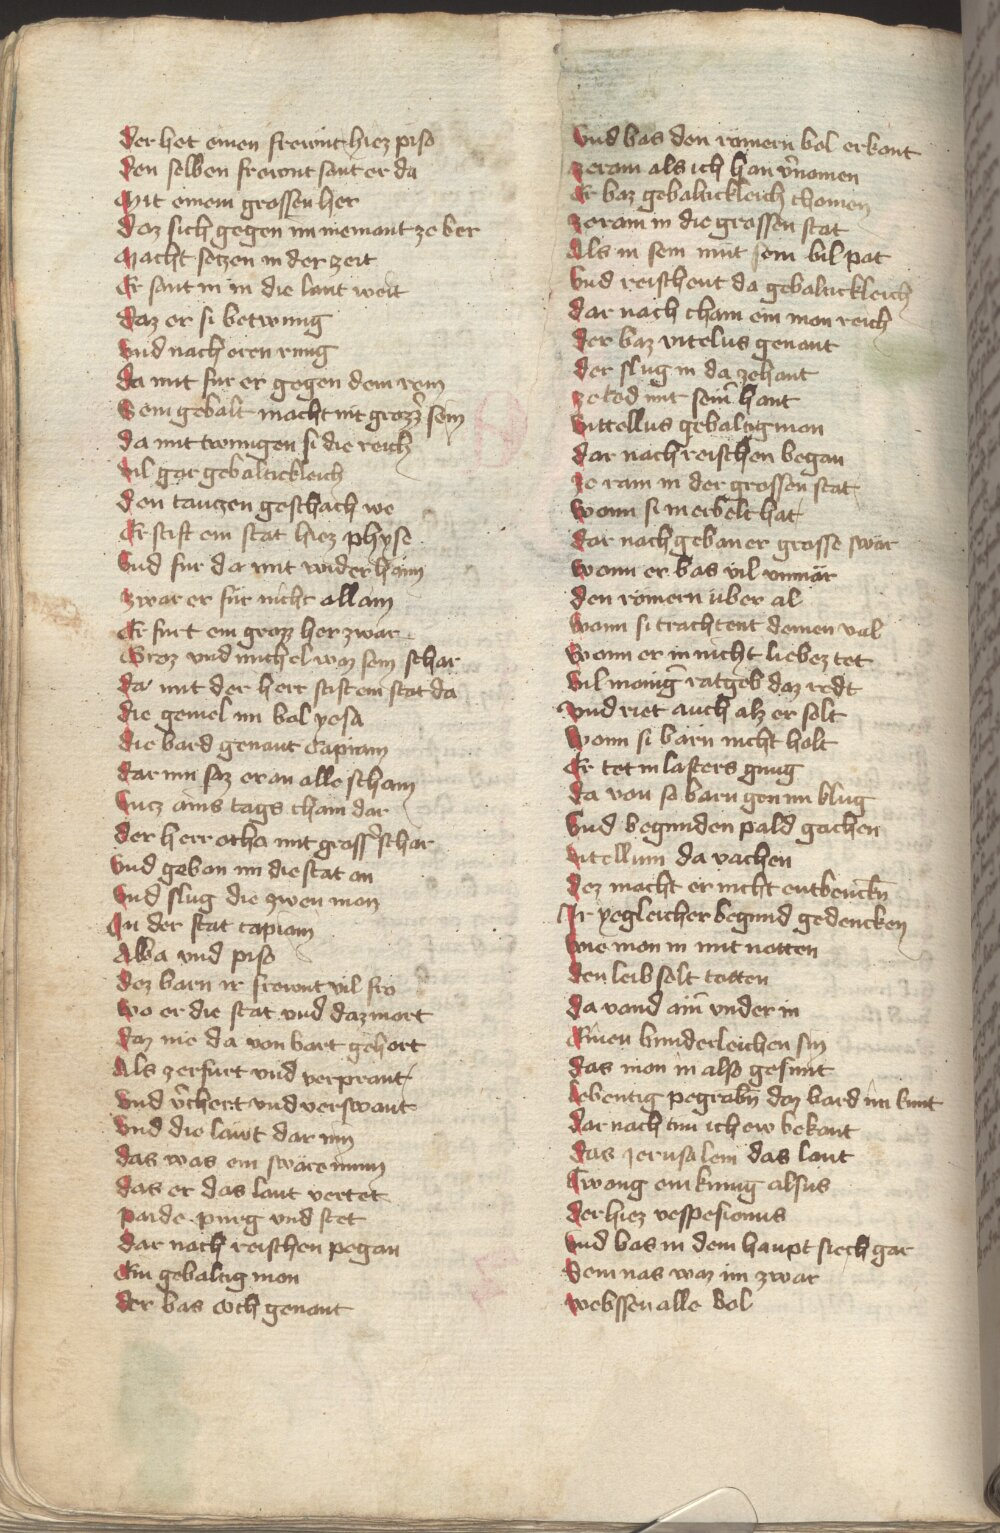 Der het einen frewnt hiez piso
Den selben frewnt sant er da
Mit einem grossen her
Daz sich gegen im niemant ze ber
Macht setzen in der zeit
Er sant in in die lant weit
Daz er si betwung
Vnd nach eren rung
Da mit fur er gegen dem rein
Sein gebalt macht nit grozz̄ sein
Da mit twungen si die reich
Vil gar gebaltickleich
Den tauczen geschach we
Er stift ein stat hiez physe
Vnd fur da mit wider haim
Zwar er für nicht allain
Er furt ein grozz her zwar
Groz vnd michel waz sein schar
Da mit der herr stift ein stat da
Die geniel im bol yesa
Die bard genant Capiam
Dar inn saz er an alle scham
Vncz ains tags cham dar
Der herr otho mit gross̄ schar
Vnd geban im die stat an
Vnd slug die zwen man
In der stat capiam
Alba vnd piso
Dez barn ir frewnt vil fro
Wo er die stat vnd daz mort
Daz nie da von bart gehort
Als zerfurt vnd verprant
Vnd v̄chert vnd verswant
Vnd die läwt dar inn
Das was ein swäre minn
Das er das lant vertet
Paide purg vnd stet
Dar nach reischen pegan
Ein gebaltig man
Der bas och genant
Vnd bas den römern bol erkant
Ze ram als ich han v̄nomen
Er baz gebaltickleich chomen
Ze ram in die grossen stat
Als in sein mut sein bil pat
Vnd reischent da gebaltickleich
Dar nach cham ein man reich
Der baz vitelus genant
Der slug in da zehant
Ze tod mit sein̄ hant
Vittellus gebaltig man
Dar nach reischen began
Ze ram in der grossen stat
Wann si in erbelt hat
Dar nach geban er grosse swär
Wann er bas vil vnmär
Den römern über al
Wann si trachtent deinen val
Wann er in nicht liebez tet
Vil maniḡ ratgeb daz redt
Vnd riet auch alz er solt
Wann si bärn nicht holt
Er tet in lasters gnug
Da von so barn gen im klug
Vnd begunden pald gachen
Vitellum da vachen
Dez macht er nicht entbencken
Ir yegleicher begund gedencken
Wie man in mit notten
Den leib solt totten
Da vand ain̄ vnder in
Einen bunderleichen sin
Das man in also gesunt
Lebentig pegrabn̄ daz bard im kunt
Dar nach tun ich ew bekant
Das Jerusalem das lant
Twang ein kunig alsus
Der hiez vespesionus
Vnd bas in dem haupt siech gar
Sein nas waz im zwar
Webssen alle vol